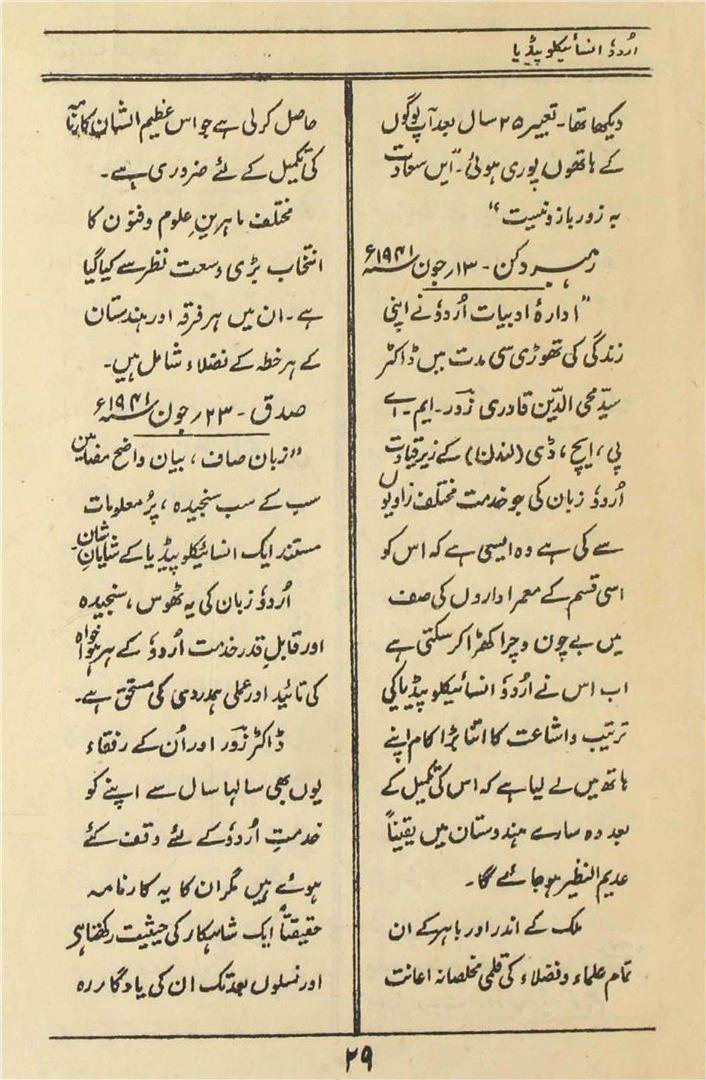 اُردو انسائیکلوپیڈیا
دیکھا تھا۔ تعبیر ۲۵ سال بعد آپ لوگوں
کے ہاتھوں پوری ہوئی۔ ایں سعادت
بہ زور بازو نیست “
رہبر دکن ۔ ۱۳؍ جون ۱۹۴۱ء
” ادارۂ ادبیات اُردو نے اپنی
زندگی کی تھوڑی سی مدت میں ڈاکٹر
سیّد محی الدّین قادری زورؔ ۔ ایم ۔ اے
پی، ایچ، ڈی (لندن) کے زیر قیادت
اُردو زبان کی جو خدمت مختلف زاویوں
سے کی ہے وہ ایسی ہے کہ اس کو
اسی قسم کے معمر اداروں کی صف
میں بے چون و چرا کھڑا کر سکتی ہے
اب اس نے اُردو انسائیکلوپیڈیا کی
ترتیب و اشاعت کا اتنا بڑا کام اپنے
ہاتھ میں لے لیا ہے کہ اس کی تکمیل کے
بعد وہ سارے ہندوستان میں یقیناً
عدیم النظیر ہو جائے گا۔
ملک کے اندر اور باہر کے ان
تمام علماء و فضلاء کی قلمی مخلصانہ اعانت
حاصل کر لی ہے جو اس عظیم الشان کارنامہ
کی تکمیل کے لئے ضروری ہے۔
مختلف ماہرینِ علوم و فنون کا
انتخاب بڑی وسعت نظر سے کیا گیا
ہے۔ ان میں ہر فرقہ اور ہندستان
کے ہر خطہ کے فضلاء شامل ہیں۔
صدق ۔ ۲۳؍ جون ۱۹۴۱ء
” زبان صاف، بیان واضح مضامین
سب کے سب سنجیدہ، پُر معلومات
مستند ایک انسائیکلوپیڈیا کے شایانِ شان۔
اُردو زبان کی یہ ٹھوس، سنجیدہ
اور قابلِ قدر خدمت اُردو کے ہر ہوا خواہ
کی تائید اور عملی ہمدردی کی مستحق ہے۔
ڈاکٹر زورؔ اور اُن کے رفقاء
یوں بھی سالہا سال سے اپنے کو
خدمتِ اُردو کے لئے وقف کئے
ہوئے ہیں مگر ان کا یہ کارنامہ
حقیقتاً ایک شاہکار کی حیثیت رکھتا ہے
اور نسلوں بعد تک ان کی یادگار رہ
۲۹